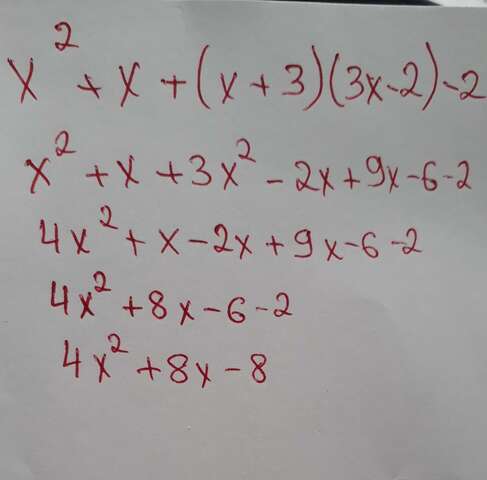 x² + x + (x + 3)(3x - 2) - 2
x² + x + 3x² - 2x + 9x - 6 - 2
4x² + x - 2x + 9x - 6 - 2
4x² + 8x - 6 - 2
4x² + 8x - 8